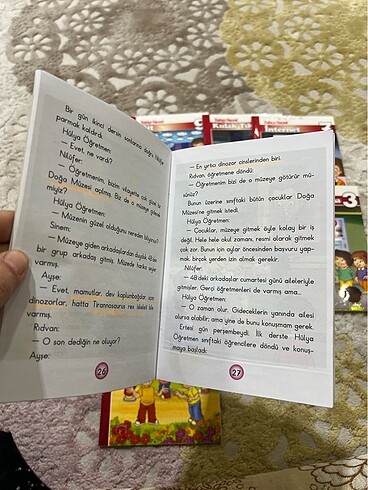 Bir gün ikinci dersin sonlarına doğru Nilüfer
parmak kaldırdı.
Hülya Öğretmen:
— Evet, ne vardı?
Nilüfer:
— Öğretmenim, bizim vilayette çok güzel bir
Doğa Müzesi açılmış. Biz de o müzeye gitmez
miyiz?
Hülya Öğretmen:
— Müzenin güzel olduğunu nereden biliyoruz?
Sinem:
— Müzeye giden arkadaşlardan duyduk. 4B'den
bir grup arkadaş gitmiş. Müzede harika şeyler
varmış.
Ayşe:
— Evet, mamutlar, dev kaplumbağalar, son
dinozorlar, hatta Tirannosaurus rex iskeleti bile
varmış.
Rıdvan:
— O son dediğin ne oluyor?
Ayşe:
26
— En yırtıcı dinozor cinslerinden biri.
Rıdvan, öğretmene döndü:
— Öğretmenim bizi de o müzeye götürür mü-
sünüz?
Bunun üzerine sınıftaki bütün çocuklar Doğa
Müzesi'ne gitmek istedi.
Hülya Öğretmen:
— Çocuklar, müzeye gitmek öyle kolay bir iş
değil. Hele hele okul zamanı, resmi olarak gitmek
çok zor. Bunun için aylar öncesinden başvuru yap-
mak, birçok yerden izin almak gerekir.
Nilüfer:
— 4B'deki arkadaşlar cumartesi günü aileleriyle
gitmişler. Gerçi öğretmenleri de varmış ama...
Hülya Öğretmen:
— O zaman olur. Gideceklerin yanında ailesi
olursa olabilir; ama yine de bunu konuşmam gerek.
Ertesi gün perşembeydi. İlk derste Hülya
Öğretmen sınıftaki öğrencilere döndü ve konuş-
maya başladı:
27
İnternet
3